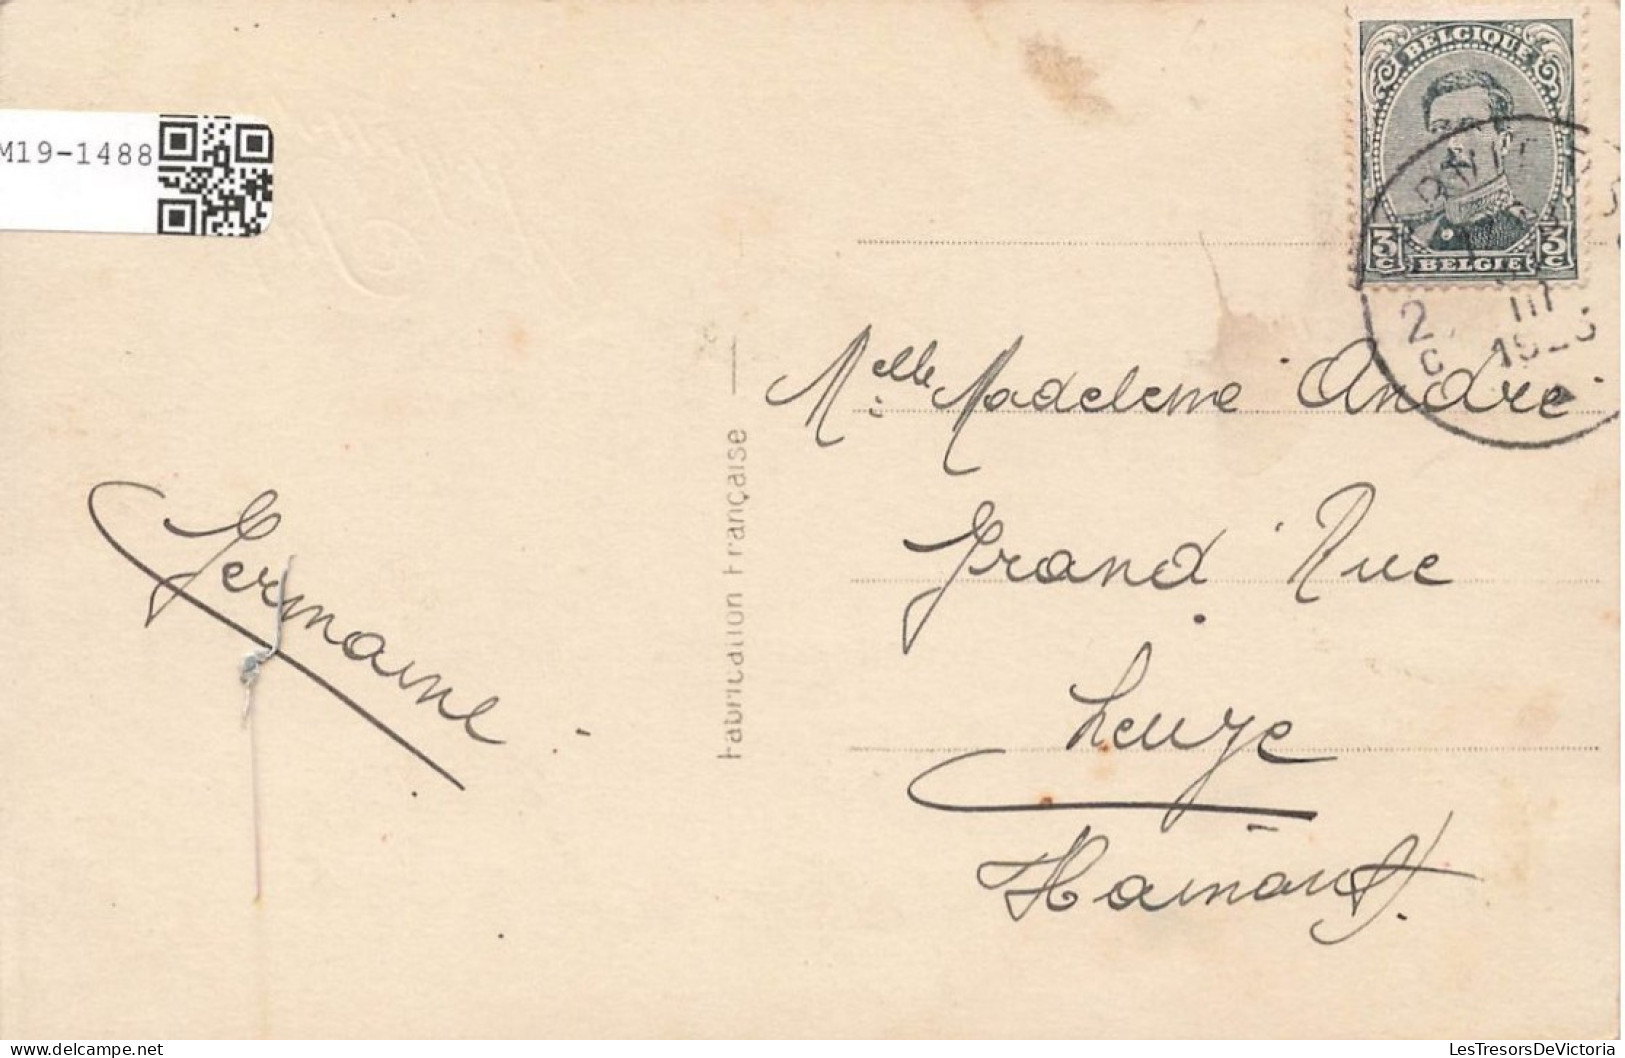 M19-1488
BELGIQUE
3c 3c
BELGIE
1923
Melle Madeleine André
Grand' Rue
Leuze
Hainaut.
Germaine
Fabrication Française
LesTresorsDeVictoria
https://www.delcampe.net